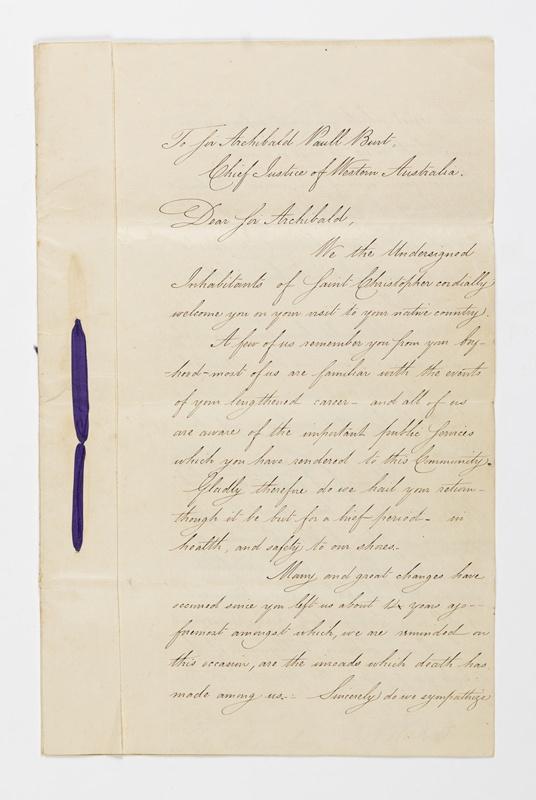 To Sir Archibald Paull Burt.
Chief Justice of Western Australia.
Dear Sir Archibald,
We the Undersigned
Inhabitants of Saint Christopher cordially
welcome you on your visit to your native country.
A few of us remember you from your boy-
hood - most of us are familiar with the events
of your lengthened career - and all of us
are aware of the important public Services
which you have rendered to this Community.
Gladly therefore do we hail your return -
though it be but for a brief period - in
health, and safety to our shores.
Many and great changes have
occurred since you left us about 12 years ago -
foremost amongst which, we are reminded on
this occasion, are the inroads which death has
made among us. - Sincerely do we sympathize